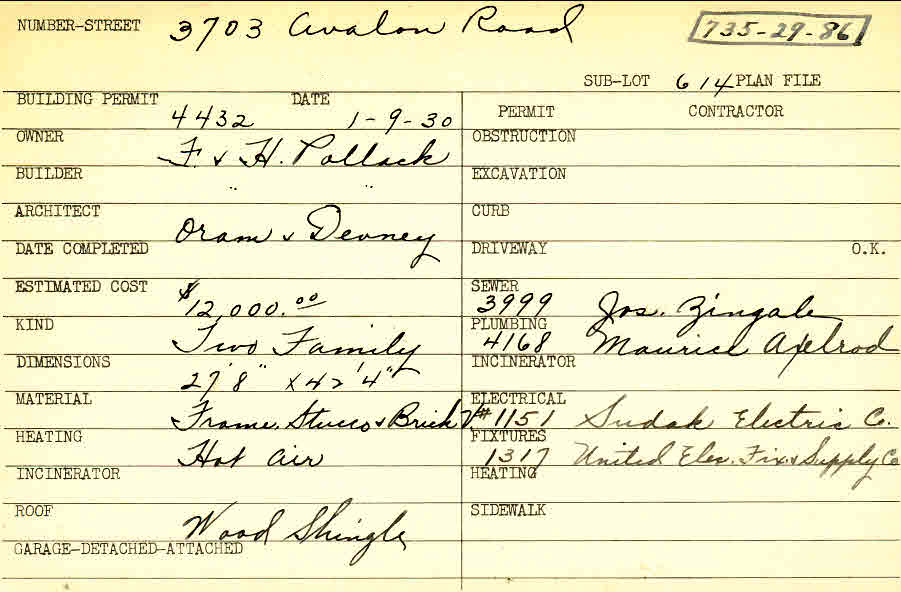 NUMBER-STREET 3703 Avalon Road 735-29-86
SUB-LOT 614 PLAN FILE
BUILDING PERMIT 4432 DATE 1-9-30
PERMIT CONTRACTOR
OWNER F. & H. Pollack
OBSTRUCTION
BUILDER " "
EXCAVATION
ARCHITECT Oram & Devney
CURB
DATE COMPLETED
DRIVEWAY O.K.
ESTIMATED COST $12,000.00
SEWER 3999 Jos. Zingale
KIND Two Family
PLUMBING 4168 Maurice Axelrod
DIMENSIONS 27'8" x 42'4"
INCINERATOR
MATERIAL Frame, Stucco & Brick V
ELECTRICAL #1151 Sudak Electric Co.
HEATING Hot Air
FIXTURES 1317 United Elec. Fix. & Supply Co
INCINERATOR
HEATING
ROOF Wood Shingle
SIDEWALK
GARAGE-DETACHED-ATTACHED